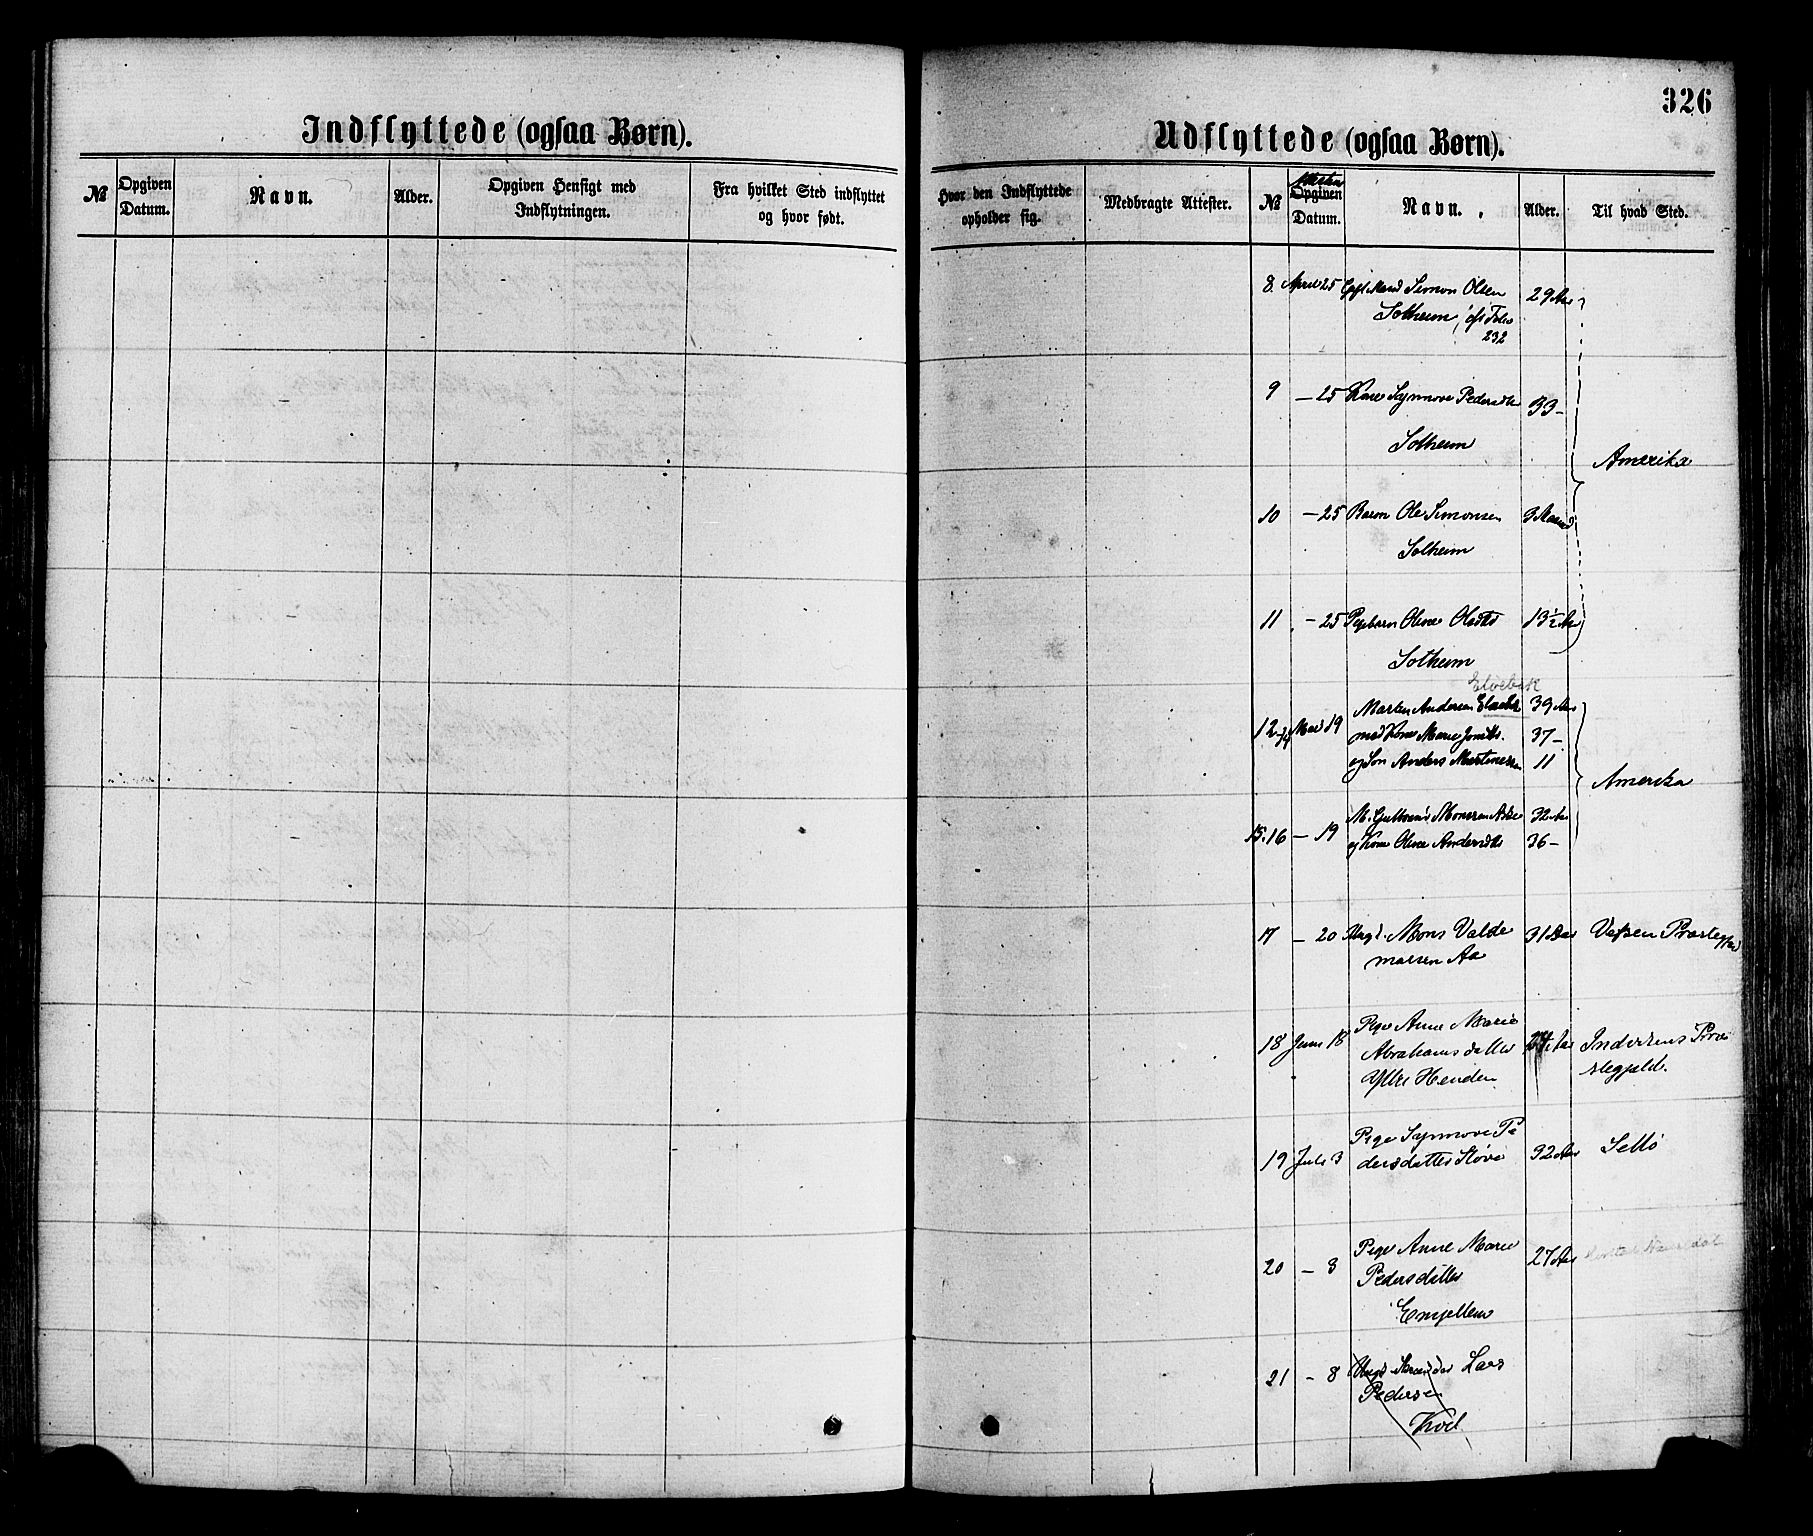 326
Indflyttede (ogsaa Børn).
Udflyttede (ogsaa Børn).
№ Opgiven Datum. Navn. Alder. Opgiven Hensigt med Indflytningen. Fra hvilket Sted indflyttet og hvor født.
Hvor den Indflyttede opholder sig. Medbragte Attester. № Opgiven Datum. Navn. Alder. Til hvad Sted.
8 April 25 Gift Mand Simon Olsen 29 Aar
Solheim, cfr Folio
232
9 – 25 Kone Synnove Pedersdtr 33 –
Solheim
Amerika
10 – 25 Barn Ole Simonsen 3 Maaned
Solheim
11 – 25 Pigebarn Oline Olsdtr 13 ½ Aar
Solheim
Elvebak
12-14 Mai 19 Marten Andersen 39 Aar
med Kone Marie Jonsdtr. 37 –
og Søn Anders Martinussen 11
Amerika
M. Monssen 32 Aar
15.16 – 19 og Kone Oline Andersdtr 36 –
17 – 20 Ungk. Mons Valde 31 Aar Vefsen Præstegjæld
marsen Aa
18 Juni 18 Pige Anne Marie 24 Aar Inderøens Præ
Abrahamsdatter stegjeld.
Ytre Henden
19 Juli 3 Pige Synnove Pe 32 Aar Selbo
dersdatter Støve
20 – 8 Pige Anne Marie 27 Aar
Pedersdatter
Emhjellen
21 – 8 Ungk Lars
Pedersen